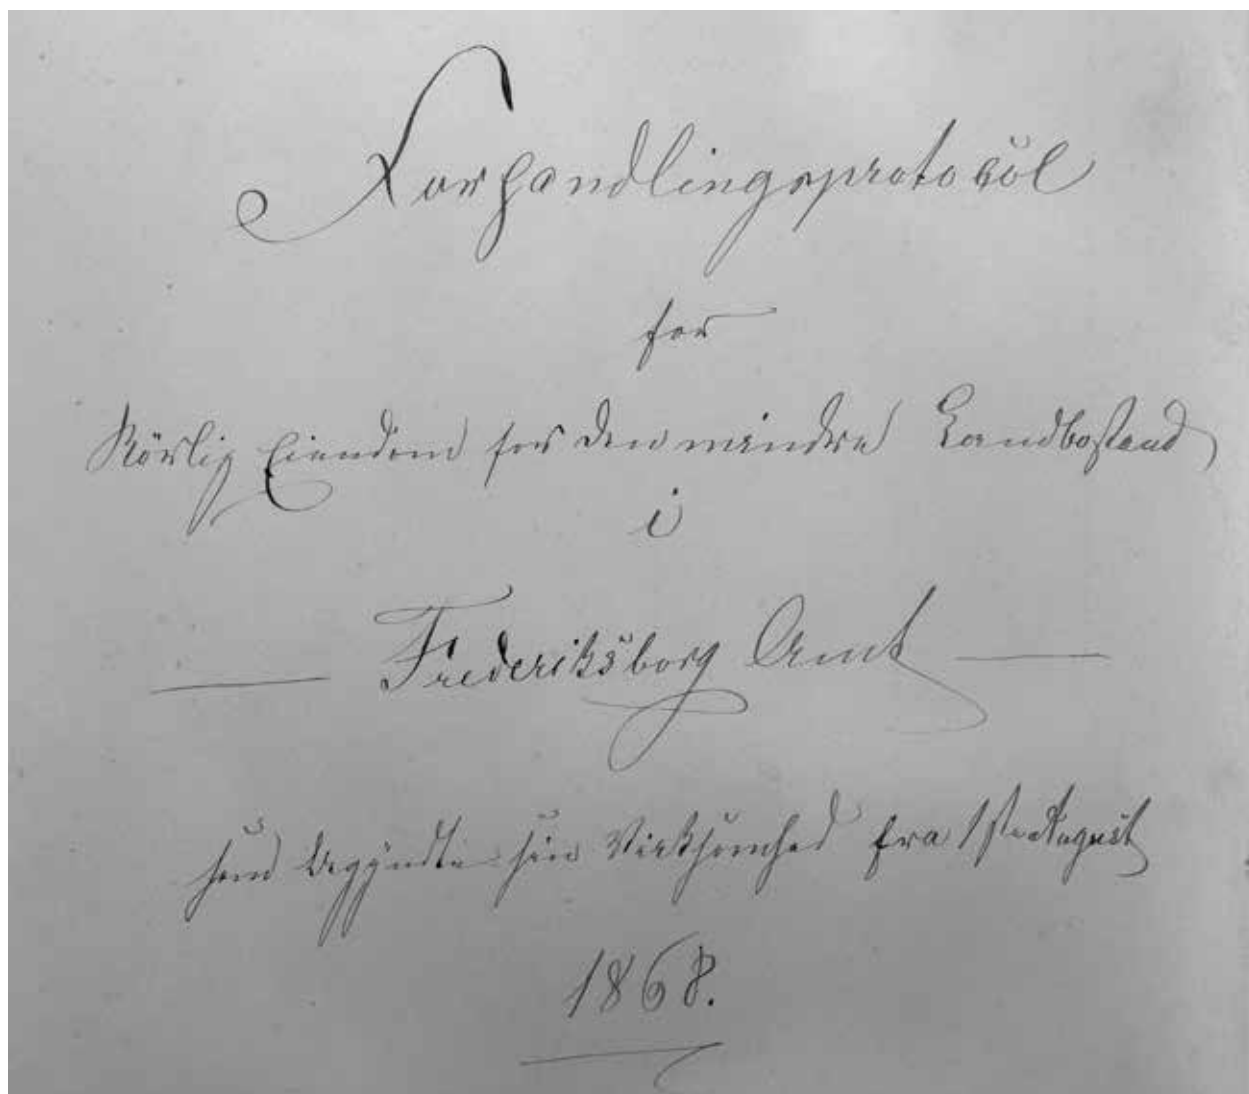 Forhandlingsprotokol
for
Rörlig Eiendom for den mindre Landbostand
i
Frederiksborg Amt
som begyndte sin Virksomhed fra 1ste August
1868.